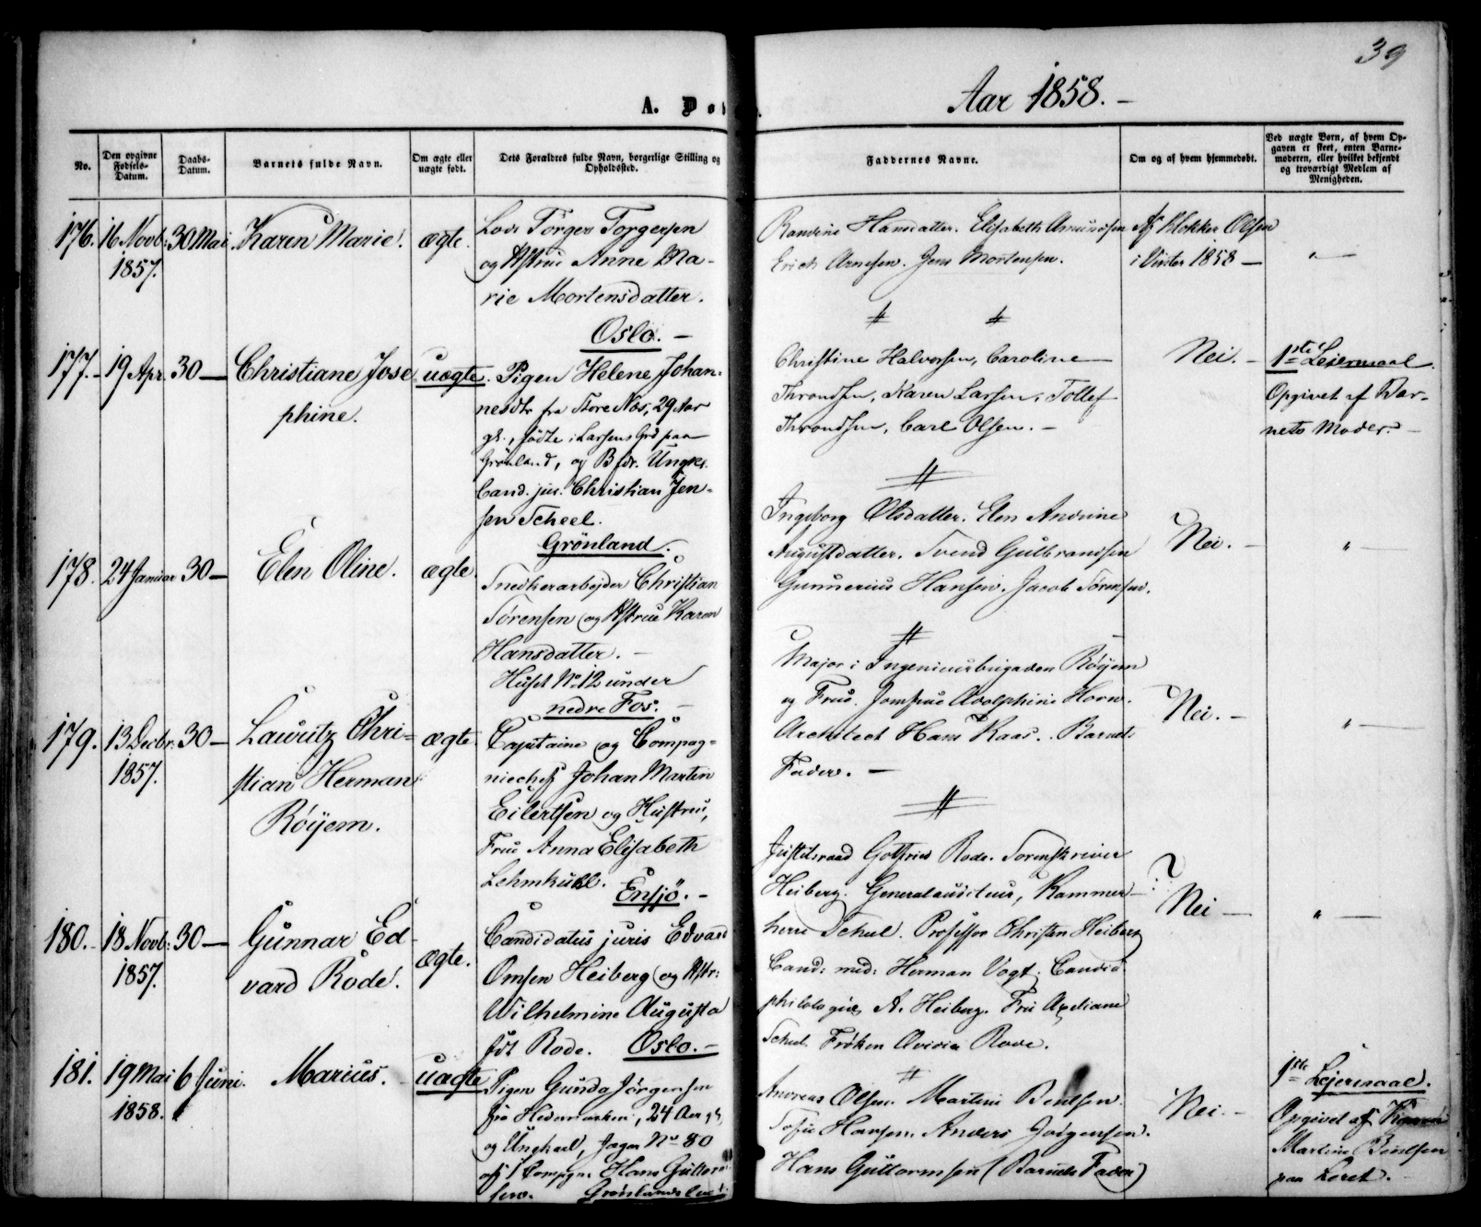 39
Aar 1858.-
A. Dø
No.
Den opgivne Fødsels-Datum.
Daabs-Datum.
Barnets fulde Navn.
Om ægte eller uægte født.
Dets Forældres fulde Navn, borgerlige Stilling og Opholdssted.
Faddernes Navne.
Om og af hvem hjemmedøbt.
Ved uægte Børn, af hvem Opgaven er skeet, enten Barnemoderen, eller hvilket bekjendt og troværdigt Medlem af Menigheden.
176. 16 Novb: 30 Mai Karen Marie. ægte.
1857.
Lods Törger Torgersen
og Hstrue Anne Ma-
rie Mortensdatter.
Oslo. -
Hansdatter. Elisabeth Amundsen
Erich Arnesen. Jens Mortensen.
Af Klokker Olsen
i Vinter 1858 -
177.- 19 Apr. 30 - Christiane Jose uægte.
phine.
Pigen Helene Johan-
nesdtr fra Store Næs, 29 Aar
gl., födte i Larsens Grd paa
Grönland, og B fdr. Ungk.
Cand. jur. Christian Jen-
sen Scheel.
Grönland.
Christine Halvorsen, Caroline
Throndsen, Karen Larsen, Tollef
Throndsen, Carl Olsen. -
Nei. -
1ste Leiermaal.
Opgivet af Bar-
nets Moder. -
178. 24 Januar 30 - Elen Oline. ægte.
Snedkerarbejder Christian
Sörensen og Hstrue Karen
Hansdatter. -
Huset No 12 under
nedre Fos. -
Ingeborg Olsdatter. Elen Andrine
Augustdatter. Svend Gulbrandsen
Gunnerius Hansen. Jacob Sörensen.
Nei. -
179. 13 Decbr: 30 - Lauritz Chri- ægte
1857.
stian Herman
Röyem.
Capitaine og Compag-
niechef Johan Martin
Eilertsen og Hustru,
Frue Anna Elisabeth
Lehmkuhl.
Ensjö. -
Major i Ingenieurbrigaden Röyem
og Frue. Jomfrue Adolphine Horn.
Architect Hans Kaas. Barnets
Fader. -
Nei. -
180.- 18 Novb: 30 - Gunnar Ed- ægte.
1857.
vard Rode.
Candidatus juris Edvard
Omsen Heiberg og Hstr:
Wilhelmine Augusta
fdt Rode. Oslo. -
Justitsraad Gotfried Rode. Sorenskriver
Heiberg. Generalauditeur, Kammer-
herre Scheel. Professor Christen Heiberg
Cand: med: Herman Vogt. Candid.
A. Heiberg. Fru
Frøken Rode.
Nei -
181. 19 Mai 6 Juni. Marius. uægte
1858.
Pigen Gunda Jørgensen
fra Hedemarken, 24 Aar gl,
og Ungkarl, Jæger No 80
af 1 Compgn. Hans Guttorm
sen. Grønlandsleir
Andreas Olsen. Martine Bentsen.
Sofie Hansen. Anders Jörgensen.
Hans Guttormsen (Barnets Fader)
Nei. -
1ste Lejermaal.
Opgivet af
Martine Bentsen
paa Loret.